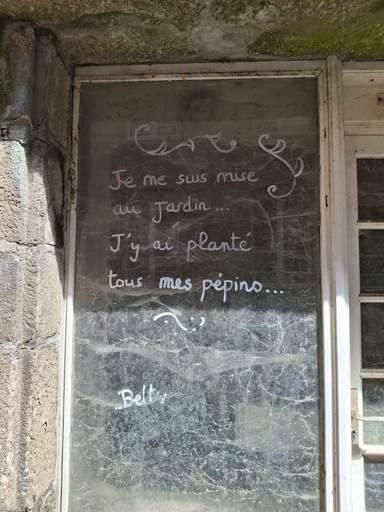 Je me suis mise
au Jardin...
J'y ai planté
tous mes pépins...